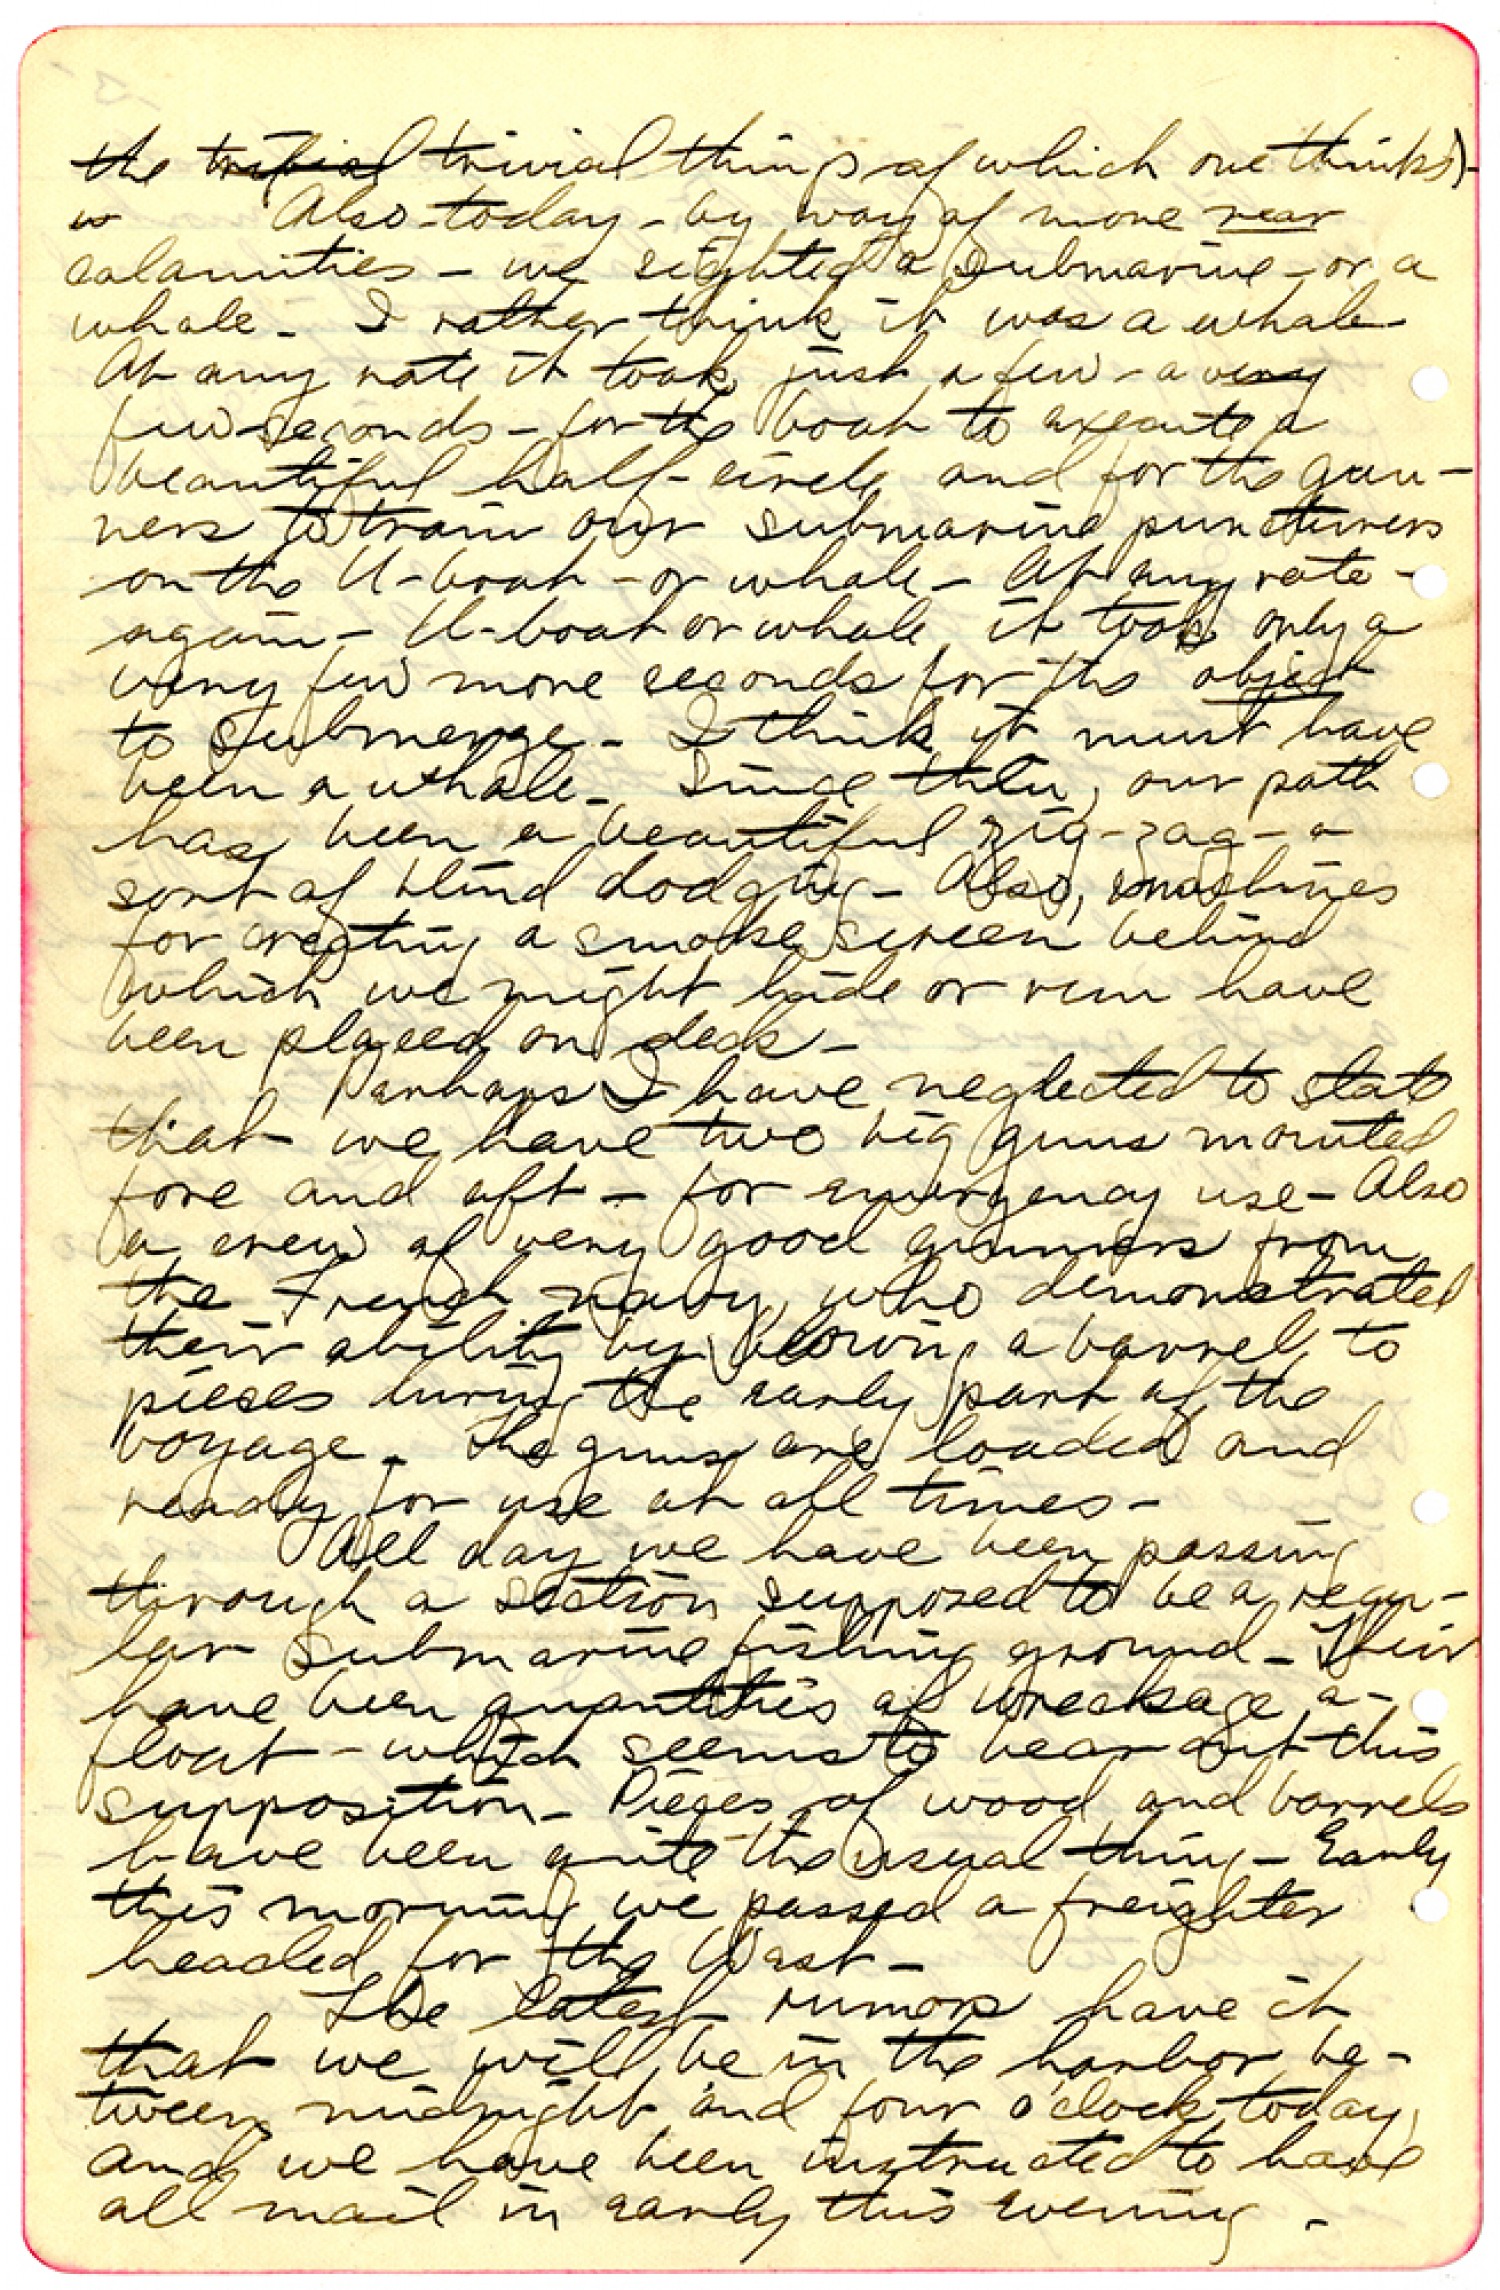 the trifial trivial things of which one thinks)-
w Also - today - by way of more near
calamities - we sighted a submarine - or a
whale - I rather think it was a whale -
At any rate it took just a few - a very
few seconds - for the boat to execute a
beautiful half-circle and for the gun-
ners to train our submarine puncturers
on the U-boat - or whale - At any rate -
again - U-boat or whale, it took only a
very few more seconds for the object
to submerge - I think it must have
been a whale - Since then, our path
has been a beautiful zig-zag - a
sort of blind dodging - Also, machines
for creating a smoke screen behind
which we might hide or run have
been placed on deck -
Perhaps I have neglected to state
that we have two big guns mounted
fore and aft - for emergency use - Also
a crew of very good gunners from
the French navy, who demonstrated
their ability by blowing a barrel to
pieces during the early part of the
voyage - The guns are loaded and
ready for use at all times -
All day we have been passing
through a section supposed to be a regu-
lar submarine fishing ground - Their
have been quantities of wreckage a-
float - which seems to bear out this
supposition - Pieces of wood and barrels
have been quite the usual thing - Early
this morning we passed a freighter
headed for the West -
The latest rumors have it
that we will be in the harbor be-
tween midnight and four o'clock today,
and we have been instructed to have
all mail in early this evening -